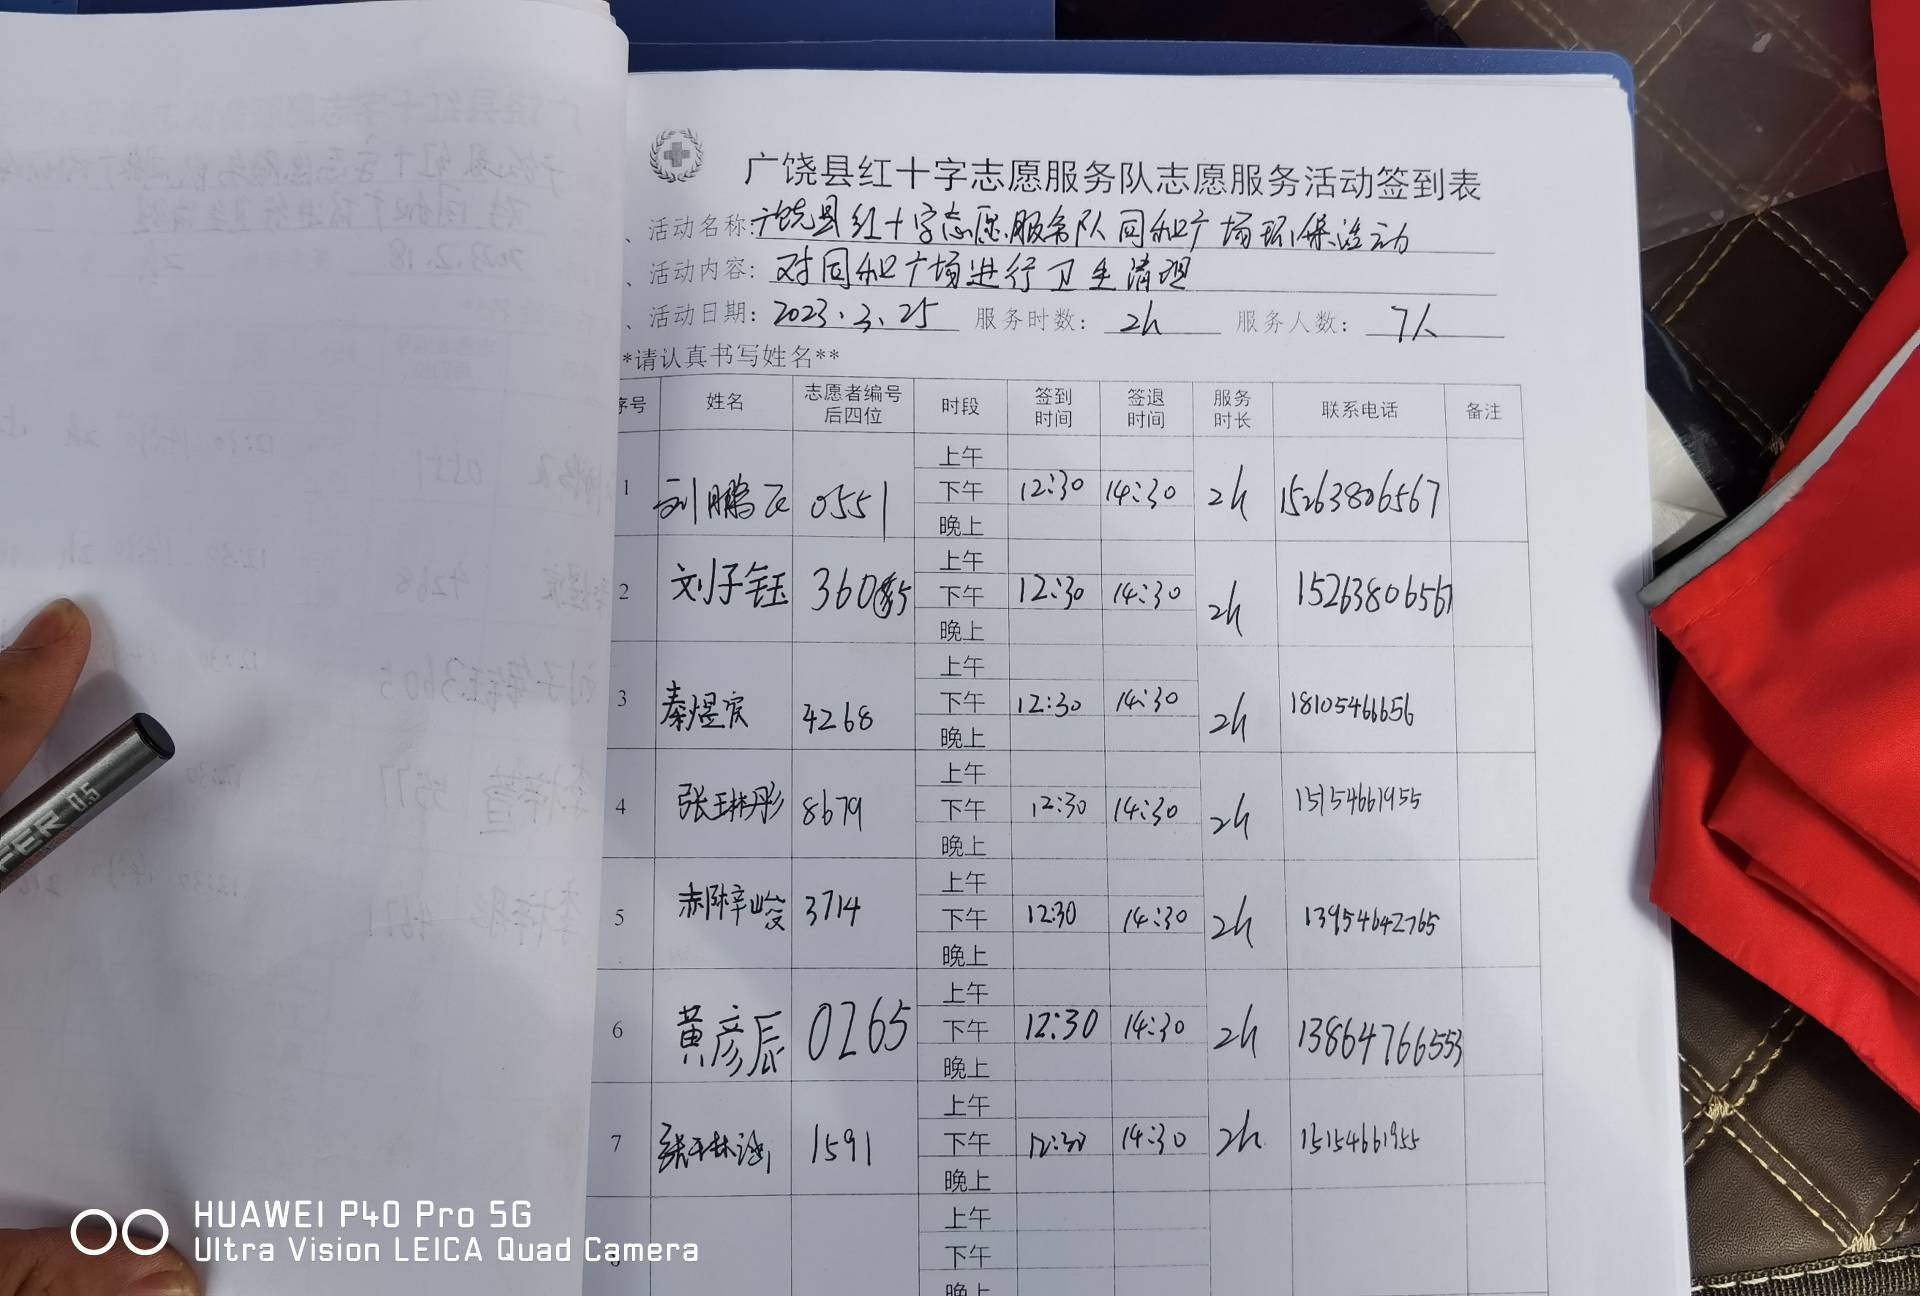 广饶县红十字志愿服务队志愿服务活动签到表
、活动名称:广饶县红十字志愿服务队同和广场环保活动
、活动内容: 对同和广场进行卫生清理
、活动日期: 2023.3.25 服务时数: 2h 服务人数: 7人
*请认真书写姓名**
序号 姓名 志愿者编号后四位 时段 签到时间 签退时间 服务时长 联系电话 备注
上午
1 刘鹏飞 0551 下午 12:30 14:30 2h 15263806567
晚上
上午
2 刘子钰 3605 下午 12:30 14:30 2h 15263806567
晚上
上午
3 秦煜宸 4268 下午 12:30 14:30 2h 18105466656
晚上
上午
4 张琳彤 8679 下午 12:30 14:30 2h 15154661955
晚上
上午
5 3714 下午 12:30 14:30 2h 13954642765
晚上
上午
6 黄彦辰 0265 下午 12:30 14:30 2h 13864766553
晚上
上午
7 1591 下午 12:30 14:30 2h 15154661955
晚上
上午
下午
晚上
HUAWEI P40 Pro 5G
Ultra Vision LEICA Quad Camera